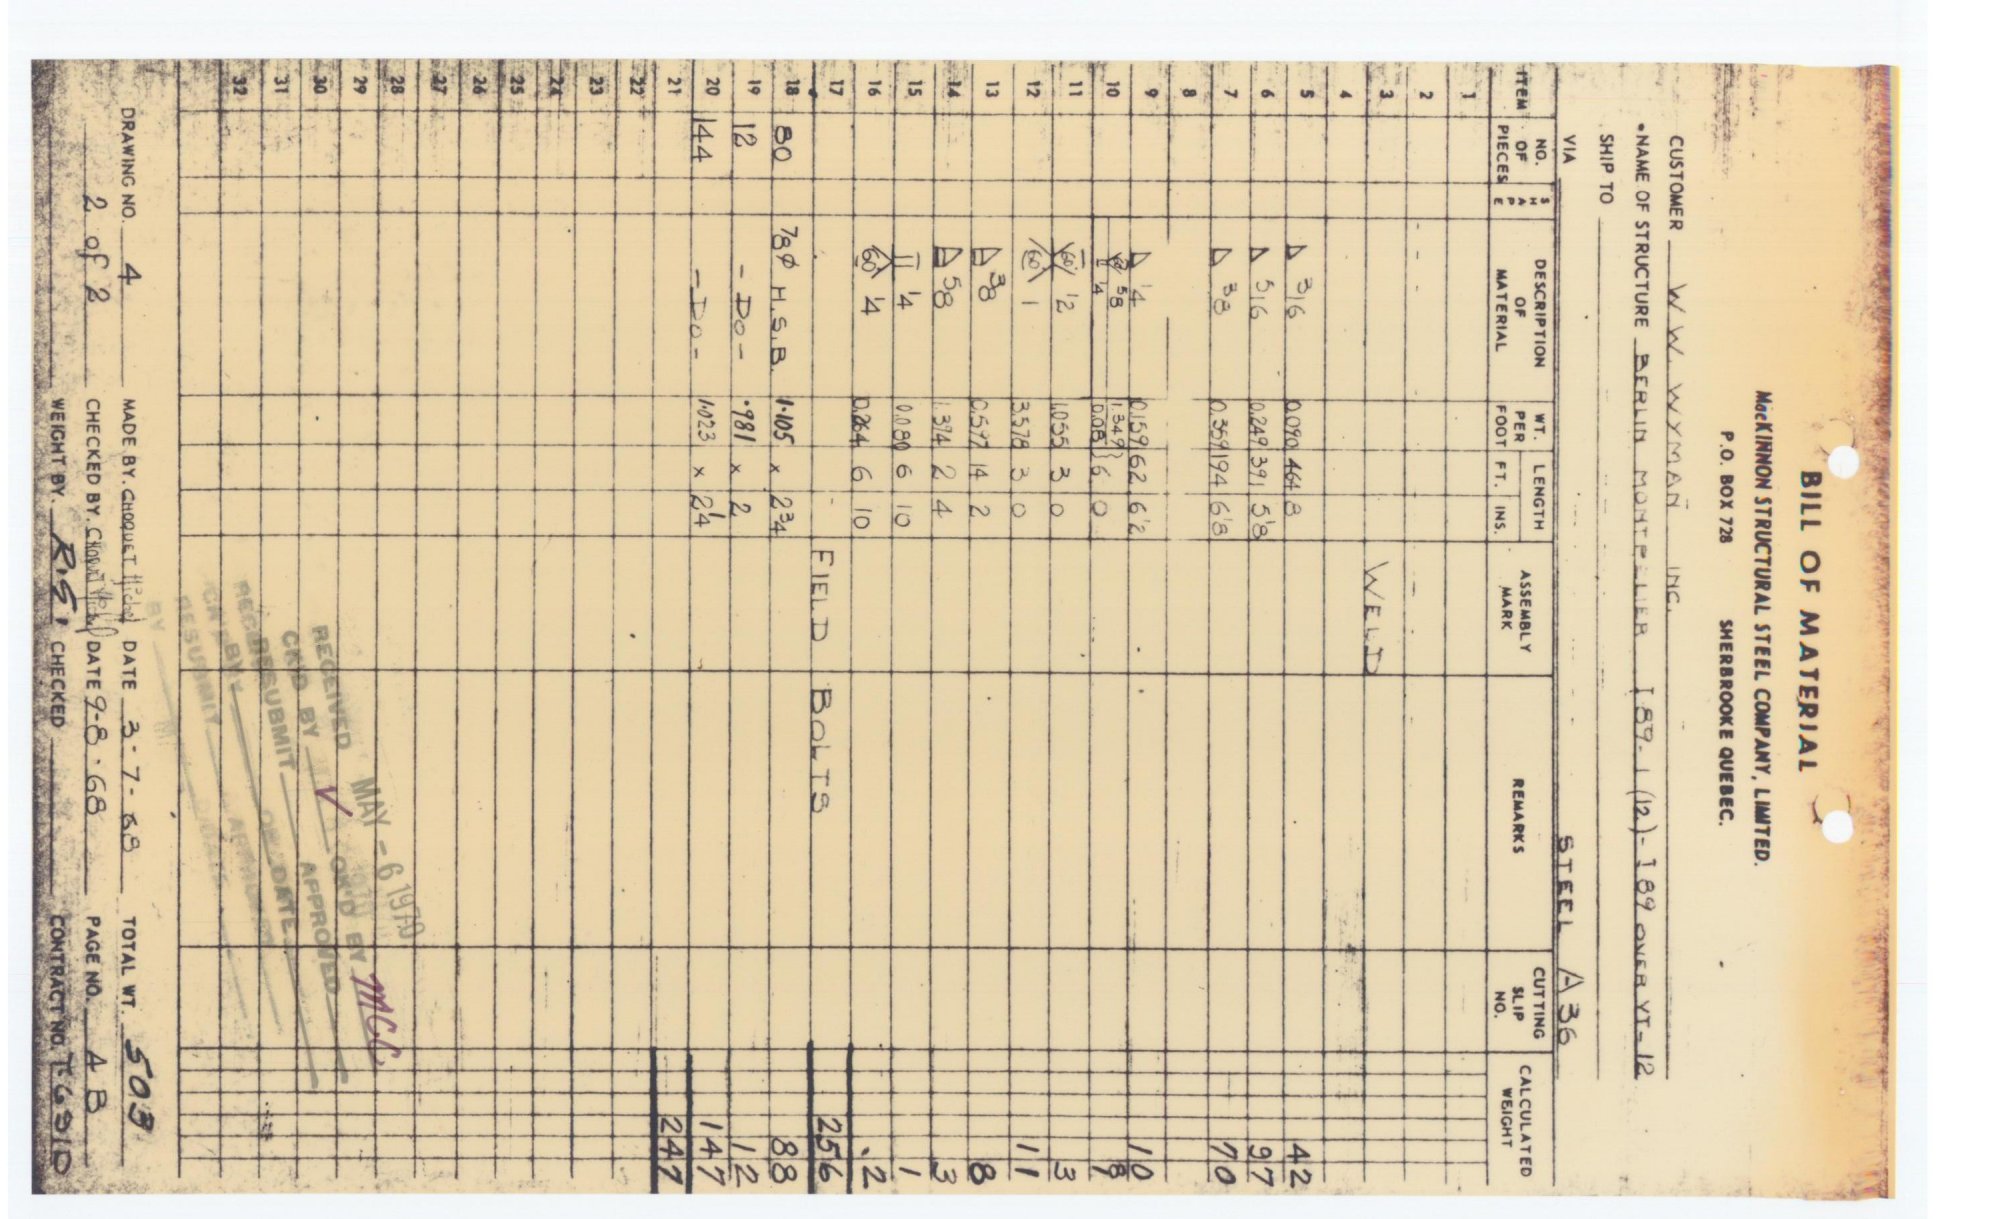 BILL OF MATERIAL
MacKINNON STRUCTURAL STEEL COMPANY, LIMITED.
P.O. BOX 728 SHERBROOKE QUEBEC.
CUSTOMER W.W. WYMAN INC.
NAME OF STRUCTURE BERLIN MONTPELIER I 89-1 (12)-I 89 OVER VT-12
SHIP TO
VIA STEEL A36
ITEM NO. OF PIECES SHAPE DESCRIPTION OF MATERIAL WT. PER FOOT LENGTH FT. INS. ASSEMBLY MARK REMARKS CUTTING SLIP NO. CALCULATED WEIGHT
1
2
3 WELD
4
5 3/16 0.090 464 8 42
6 5/16 0.249 391 5/8 97
7 3/8 0.359 194 6/8 70
8
9 1/4 0.159 62 6 1/2 10
10 5/8 1/4 1.349 0.081 6 0 8
11 60 1/2 1.055 3 0 3
12 60 1 3.578 3 0 11
13 3/8 0.597 14 2 8
14 5/8 1.394 2 4 3
15 1/4 0.080 6 10 1
16 60 1/4 0.264 6 10 .2
17 FIELD BOLTS 256
18 80 7/8 φ H.S.B. 1.105 x 2 3/4 88
19 12 -DO- .981 x 2 12
20 144 -DO- 1.023 x 2 1/4 147
21 247
22
23
24
25
26
27
28
29
30
31
32
RECEIVED MAY - 6 1970
CK'D BY OK'D BY MCC
RESUBMIT APPROVED
DRAWING NO. 4 MADE BY. CHOQUET Michel DATE 3-7-68 TOTAL WT. 503
2 of 2 CHECKED BY. Choquet Michel DATE 9-8-68 PAGE NO. 4 B
WEIGHT BY. R.S. CHECKED CONTRACT NO.